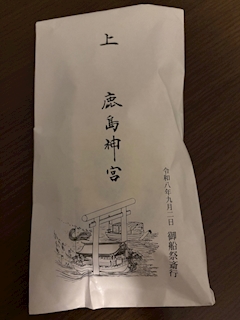 上
鹿島神宮
令和八年九月二日
御船祭斎行